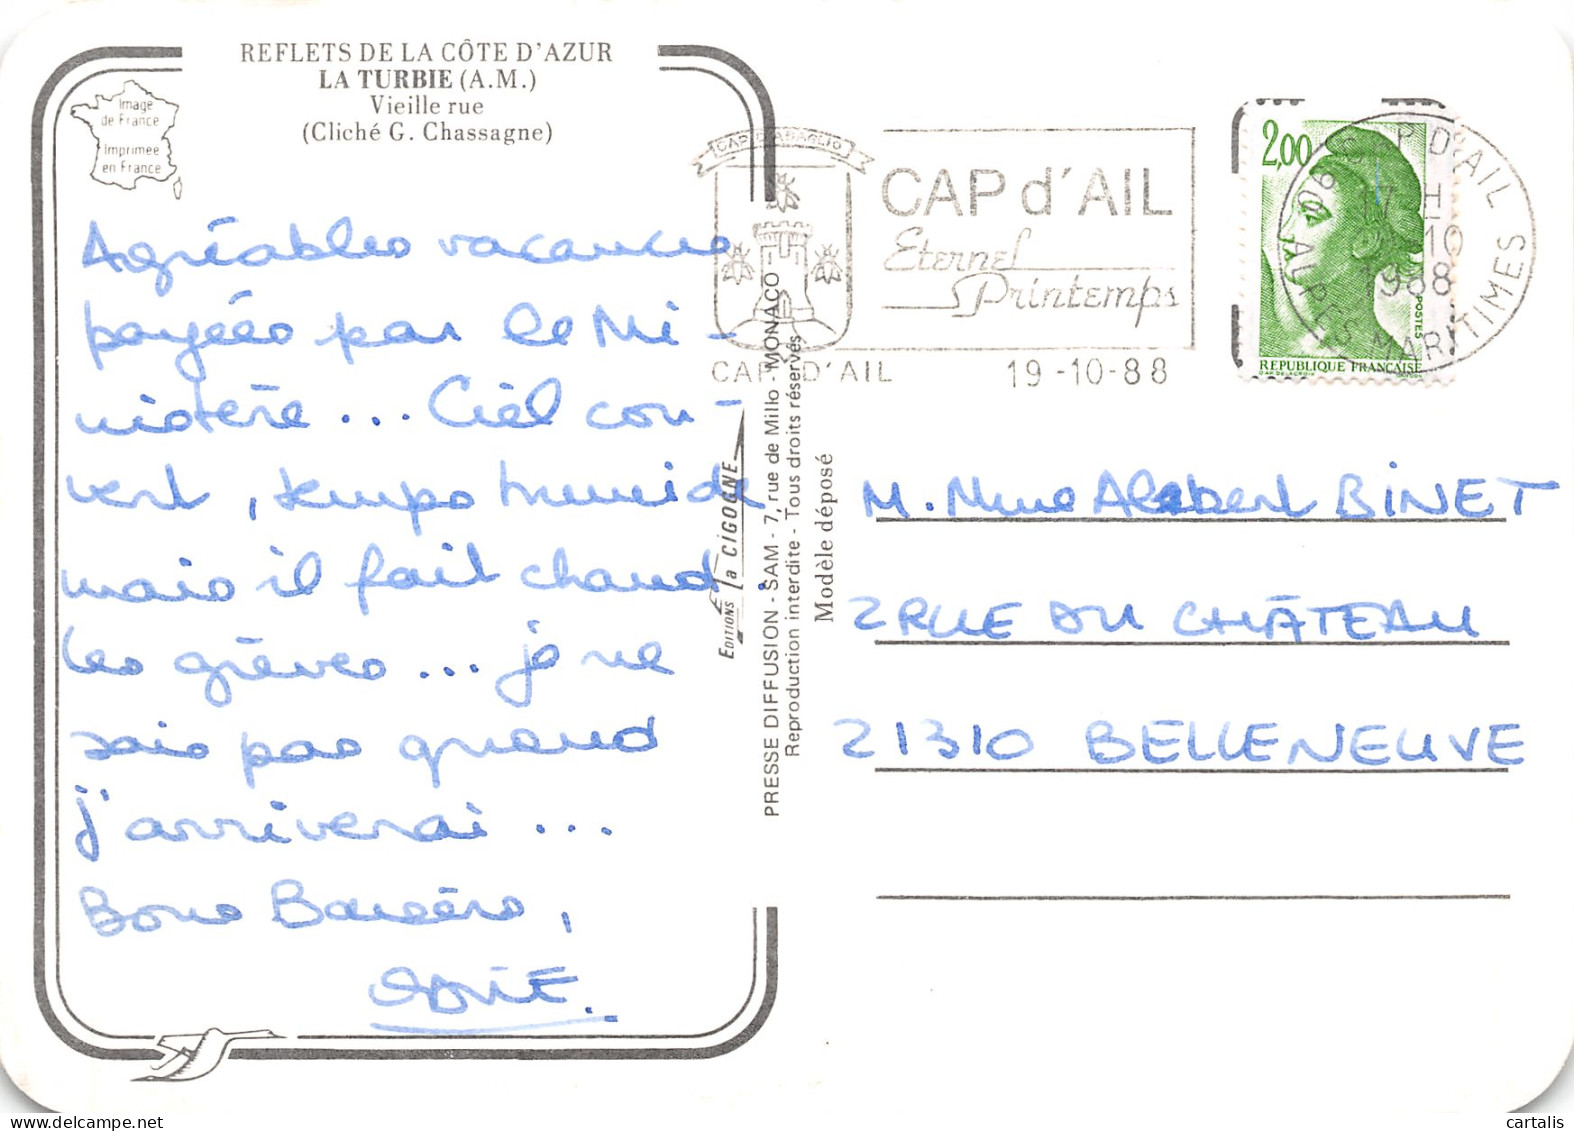 REFLETS DE LA CÔTE D'AZUR
LA TURBIE (A.M.)
Vieille rue
(Cliché G. Chassagne)
Image
de France
Imprimée
en France
Agréables vacances
payées par le Mi-
nistère ... Ciel cou-
vert, temps humide
mais il fait chaud.
les grèves ... je ne
sais pas quand
j'arriverai ...
Bons Baisers,
EDITIONS la CIGOGNE
PRESSE DIFFUSION - SAM - 7, rue de Millo - MONACO
Reproduction interdite - Tous droits réservés
Modèle déposé
CAP D'AGAGLIO
CAP d'AIL
Eternel
Printemps
CAP D'AIL
19-10-88
2,00
POSTES
REPUBLIQUE FRANÇAISE
06 CAP D'AIL
17 H
10
1988
ALPES MARITIMES
M. Mme Albert BINET
2 RUE DU CHÂTEAU
21310 BELLENEUVE
cartalis